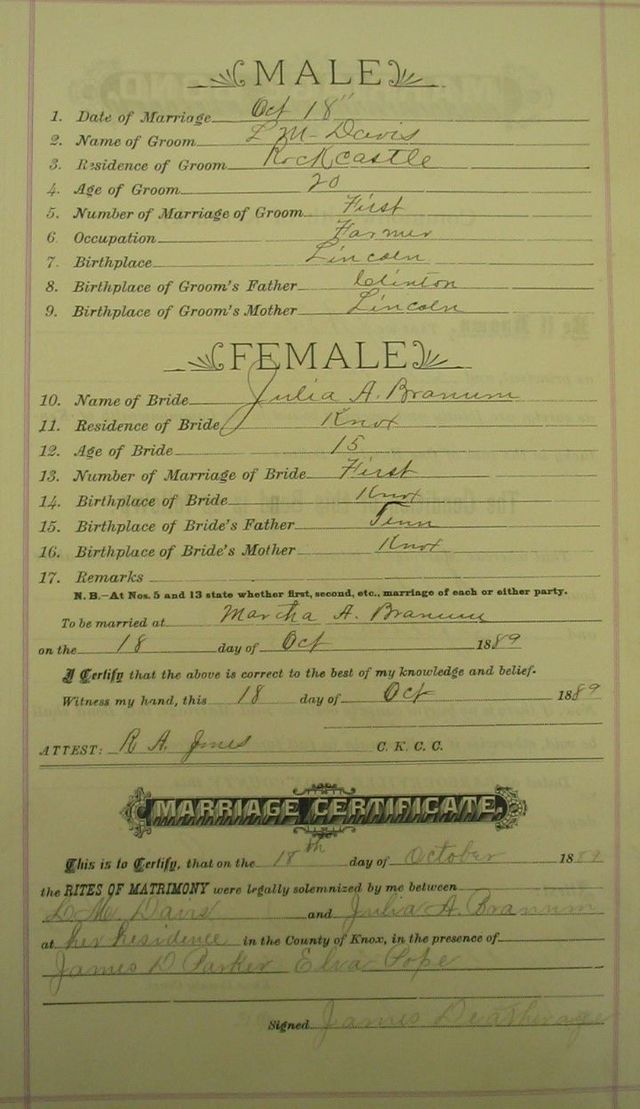 MALE
1. Date of Marriage Oct 18"
2. Name of Groom L M Davis
3. Residence of Groom Rockcastle
4. Age of Groom 20
5. Number of Marriage of Groom First
6. Occupation Farmer
7. Birthplace Lincoln
8. Birthplace of Groom's Father Clinton
9. Birthplace of Groom's Mother Lincoln
FEMALE
10. Name of Bride Julia A. Branum
11. Residence of Bride Knox
12. Age of Bride 15
13. Number of Marriage of Bride First
14. Birthplace of Bride Knox
15. Birthplace of Bride's Father Tenn
16. Birthplace of Bride's Mother Knox
17. Remarks
N. B.—At Nos. 5 and 13 state whether first, second, etc., marriage of each or either party.
To be married at Martha A. Branum
on the 18 day of Oct 1889
I Certify that the above is correct to the best of my knowledge and belief.
Witness my hand, this 18 day of Oct 1889
ATTEST: R A. Jones C. K. C. C.
MARRIAGE CERTIFICATE.
This is to Certify, that on the 18th day of October 1889
the RITES OF MATRIMONY were legally solemnized by me between
L M Davis and Julia A Branum
at her Residence in the County of Knox, in the presence of
James D Parker Elva Pope
Signed James Deatherage